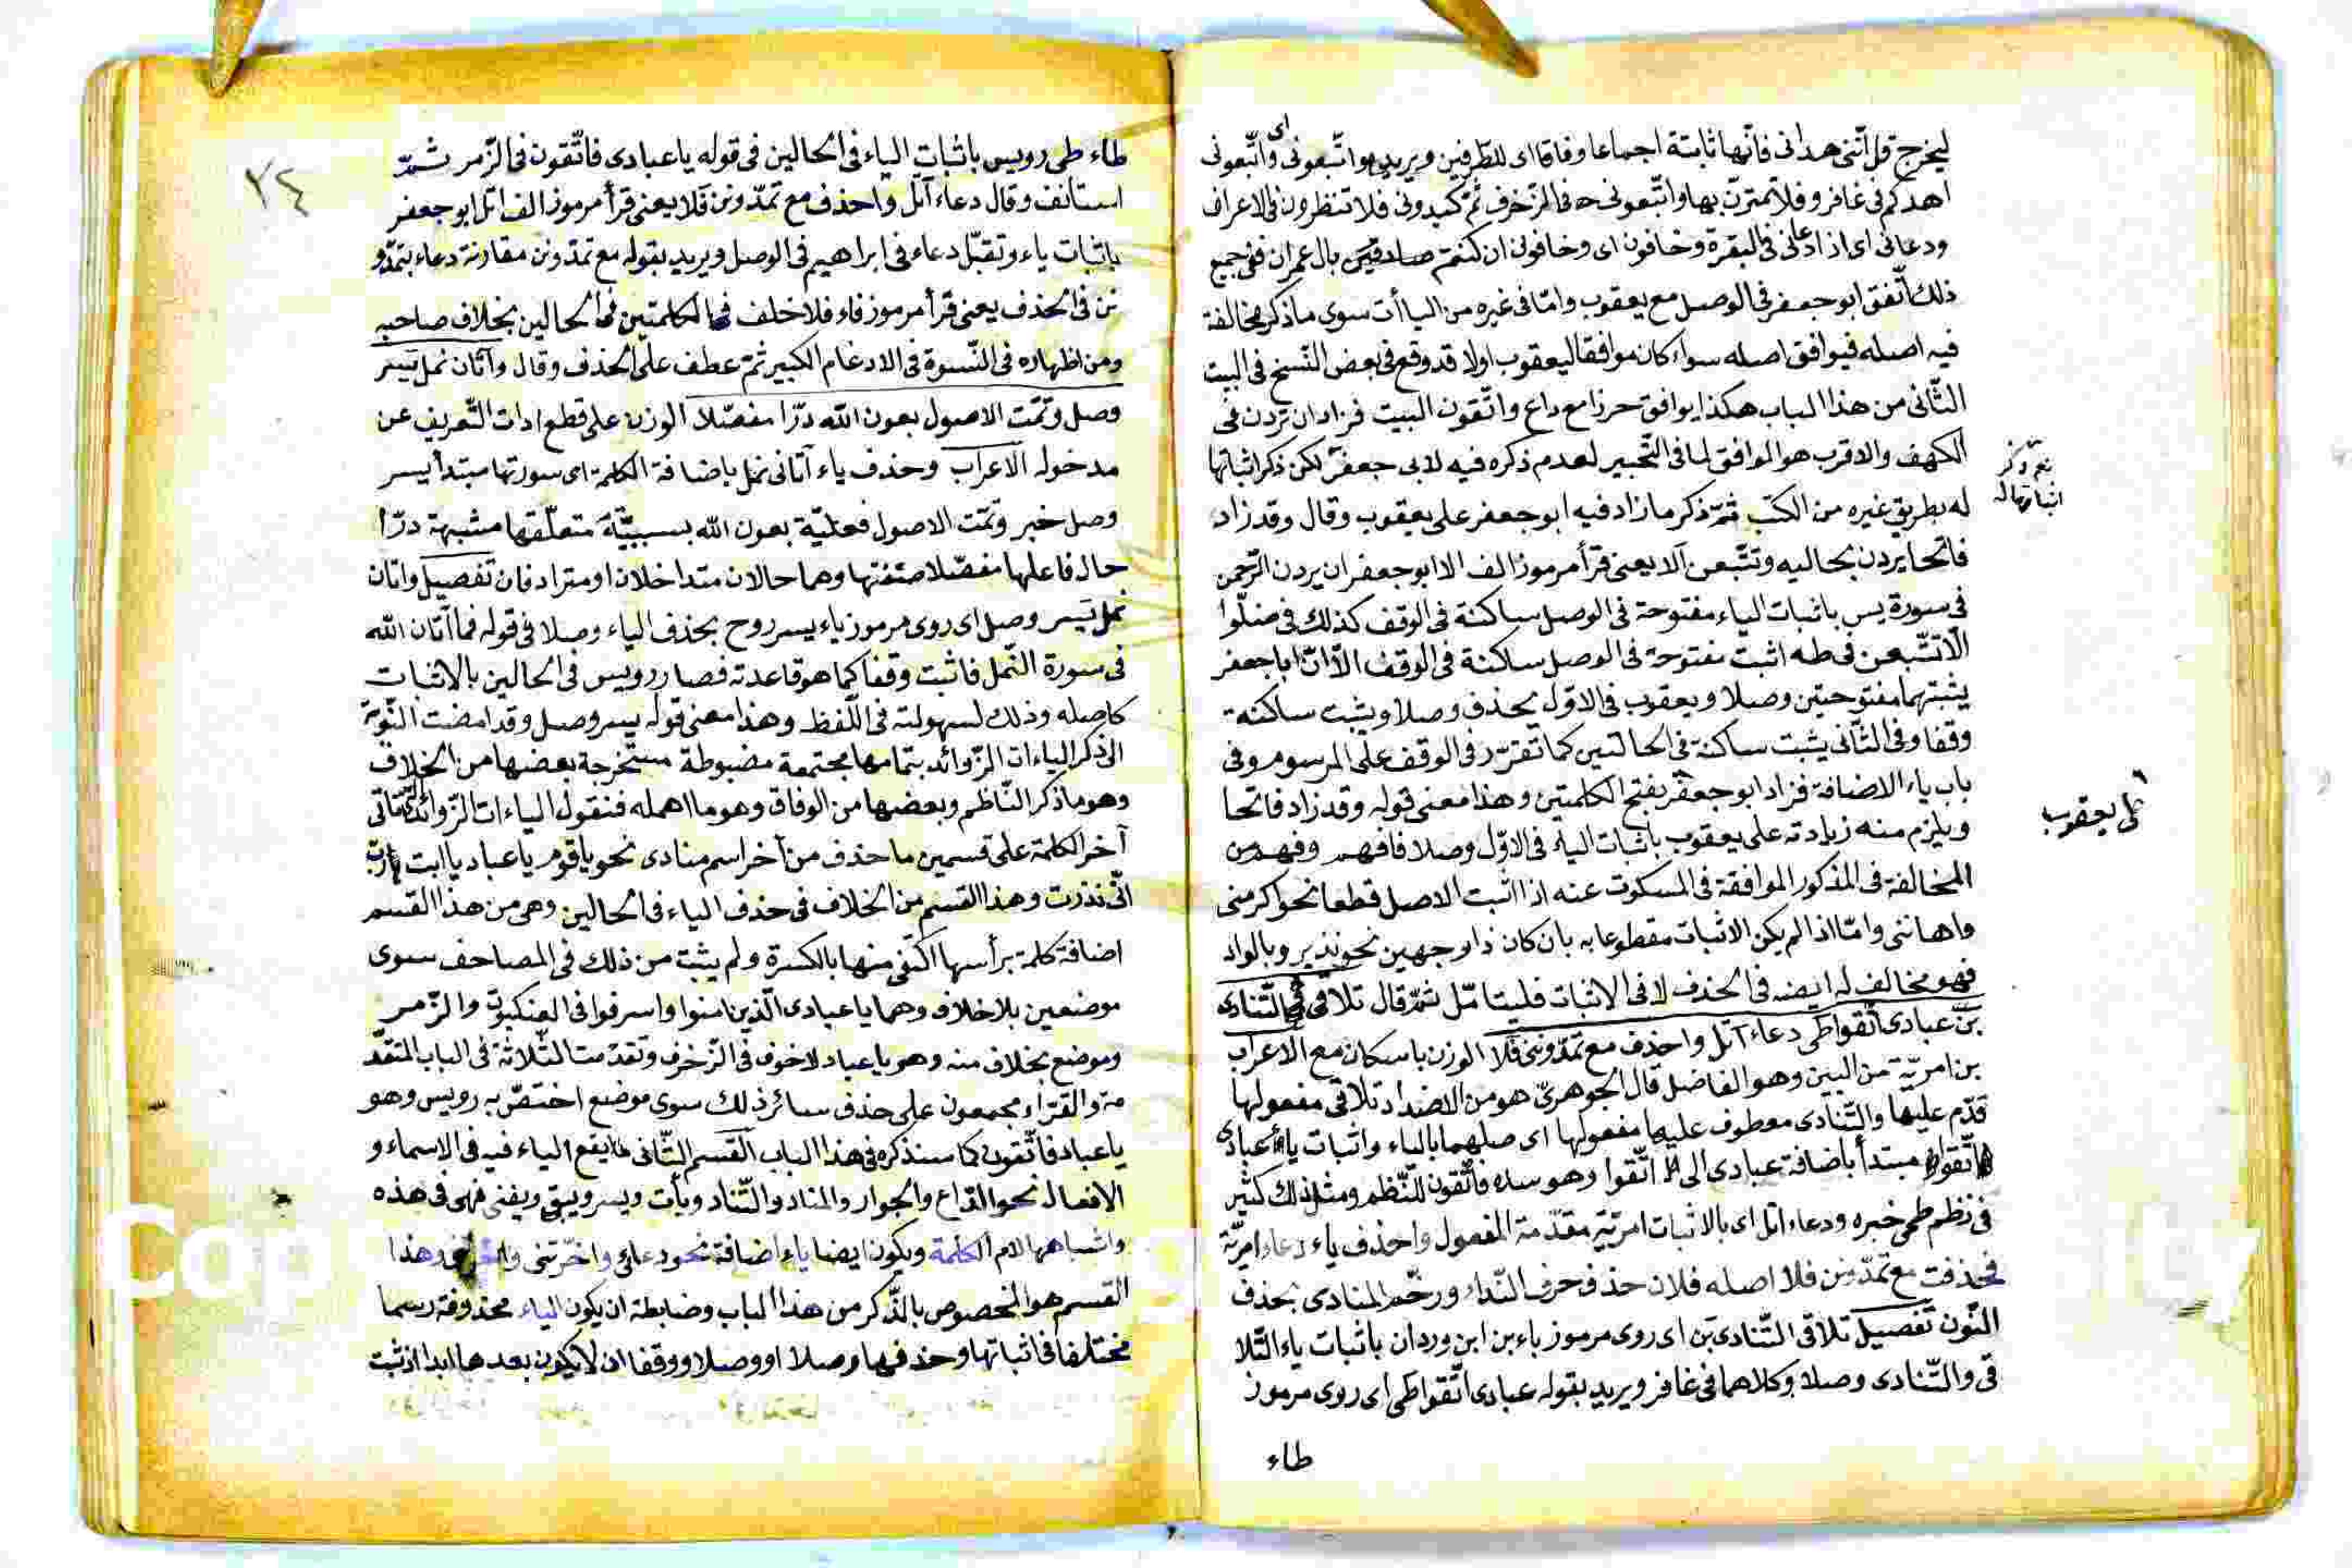 ليخرج قل انّنى هدانى فانّها ثابتة اجماعا وفاقا اى للطرفين ويريد بواتّبعونى اى واتّبعونى
اهدكم فى غافر وفلا تمترنّ بها واتّبعونى فى الزّخرف ثمّ كيدونى فلا تنظرون فى الاعراف
ودعانى اى اذا دعانى فى البقرة وخافون اى وخافونى ان كنتم صادقين بال عمران ففى جميع
ذلك اتّفق ابو جعفر فى الوصل مع يعقوب وامّا فى غيره من الياأت سوى ما ذكر مخالفة
فيه اصله فيوافق اصله سواء كان موافقا ليعقوب اولا قد وقع فى بعض النّسخ فى البيت
الثّانى من هذا الباب هكذا يوافق حرزا مع داع واتّقون البيت فزاد ان تردن فى
الكهف والاقرب هو الموافق لما فى التّحبير لعدم ذكره فيه لابى جعفر لكن ذكر اثباتها
نعم ذكر
اثباتها له
له بطريق غيره من الكتب ثمّ ذكر ما زاد فيه ابو جعفر على يعقوب وقال وقد زاد
فاتحا يردن بحاليه وتتّبعن آلا يعنى قرأ مرموز الف الا ابو جعفر ان يردن الرّحمن
فى سورة يس باثبات الياء مفتوحة فى الوصل ساكنة فى الوقف كذلك فى ضلّوا
الّا تتّبعن فى طه اثبت مفتوحة فى الوصل ساكنة فى الوقف الّا انّ ابا جعفر
يثبتهما مفتوحتين وصلا ويعقوب فى الاوّل يحذف وصلا ويثبت ساكنة
وقفا وفى الثّانى يثبت ساكنة فى الحالتين كما تقرّر فى الوقف على المرسوم وفى
باب ياء الاضافة فزاد ابو جعفر بفتح الكلمتين وهذا معنى قوله وقد زاد فاتحا
على يعقوب
ويلزم منه زيادته على يعقوب باثبات الياء فى الاوّل وصلا فافهم وفهم من
المخالفة فى المذكور الموافقة فى المسكوت عنه اذا اثبت الاصل قطعا نحو اكرمنى
واهاننى وامّا اذا لم يكن الاثبات مقطوعا به بان كان ذا وجهين نحو نذير وبالواد
فهو مخالف له ايضه فى الحذف لا فى الاثبات فليتامّل ثمّ قال تلاقى التّنادى
بن عبادى اتّقوا طى دعاء اتل واحذف مع تمدّوننى فلا الوزن باسكان مع الاعراب
بن امريّة من البين وهو الفاضل قال الجوهرىّ هو من الاضداد تلاقى مفعولها
قدّم عليها والتّنادى معطوف عليها مفعولها اى صلهما بالياء واثبات ياء عبادى
اتّقوا مبتدأ باضافة عبادى الى اتّقوا وهو ساده فاتّقون للنّظم ومثل ذلك كثير
فى نظم طى خبره ودعاء اتل اى بالاثبات امريّة مقدّمة المفعول واحذف ياء دعاء امريّة
فحذفت مع تمدّونن فلا اصله فلان حذف حرف النّداء ورخّم المنادى بحذف
النّون تفصيل تلاقى التّنادى بن اى روى مرموز باء بن ابن وردان باثبات ياء التّلا
قى والتّنادى وصلا وكلاهما فى غافر ويريد بقوله عبادى اتّقوا طى اى روى مرموز
طاء
٧٤
طاء طى رويس باثبات الياء فى الحالين فى قوله يا عبادى فاتّقون فى الزّمر ثمّ
استانف وقال دعاء اتل واحذف مع تمدّونن فلا يعنى قرأ مرموز الف اتل ابو جعفر
باثبات ياء وتقبّل دعاء فى ابراهيم فى الوصل ويريد بقوله مع تمدّونن مقارنة دعاء بتمدّو
نن فى الحذف يعنى قرأ مرموز فاء فلا خلف فى الكلمتين فى الحالين بخلاف صاحبه
ومن اظهاره فى النّسوة فى الادغام الكبير ثمّ عطف على الحذف وقال وآتان نمل يسر
وصل وتمّت الاصول بعون الله درّا مفصّلا الوزن على قطع ادات التّعريف عن
مدخوله الاعراب وحذف ياء آتانى نمل باضافة الكلمة اى سورتها مبتدأ يسر
وصل خبر وتمّت الاصول فعليّة بعون الله بسببيّة متعلّقها مشبهة درّا
حال فاعلها مفصّلا صفتها وهما حالان متداخلان او مترادفان تفصيل واتان
نمل يسر وصل اى روى مرموز ياء يسر روح بحذف الياء وصلا فى قوله فما اتان الله
فى سورة النّمل فاثبت وقفا كما هو قاعدته فصار رويس فى الحالين بالاثبات
كاصله وذلك لسهولته فى اللّفظ وهذا معنى قوله يسر وصل وقد امضت النّوبة
الى ذكر الياءات الزّوائد بتمامها مجتمعة مضبوطة مستخرجة بعضها من الخلاف
وهو ما ذكر النّاظم وبعضها من الوفاق وهو ما اهمله فنقول الياءات الزّوائد تاتى
آخر الكلمة على قسمين ما حذف من آخر اسم منادى نحو يا قوم يا عباد يا ابت يا ربّ
انّى نذرت وهذا القسم من الخلاف فى حذف الياء فى الحالين وهى من هذا القسم
اضافة كلمة برأسها اكتفى منها بالكسرة ولم يثبت من ذلك فى المصاحف سوى
موضعين بلا خلاف وهما يا عبادى الّذين امنوا واسرفوا فى العنكبوت والزّمر
وموضع بخلاف منه وهو يا عباد لا خوف فى الزّخرف وتقدّمت الثّلاثة فى الباب المتقدّ
مة والقرّاء مجمعون على حذف سائر ذلك سوى موضع اختصّ به رويس وهو
يا عباد فاتّقون كما سنذكره فى هذا الباب القسم الثّانى ما يقع الياء فيه فى الاسماء و
الافعال نحو الدّاع والجوار والمناد والتّناد ويأت ويسر ويبق ويفنى فهى فى هذه
واشباهها لام الكلمة ويكون ايضا ياء اضافة نحو دعائى واخّرتنى وهذا
القسم هو المخصوص بالذّكر من هذا الباب وضابطه ان يكون الياء محذوفة رسما
مختلفا فى اثباتها وحذفها وصلا او وصلا ووقفا ان لا يكون بعدها ابدا اذ ثبت